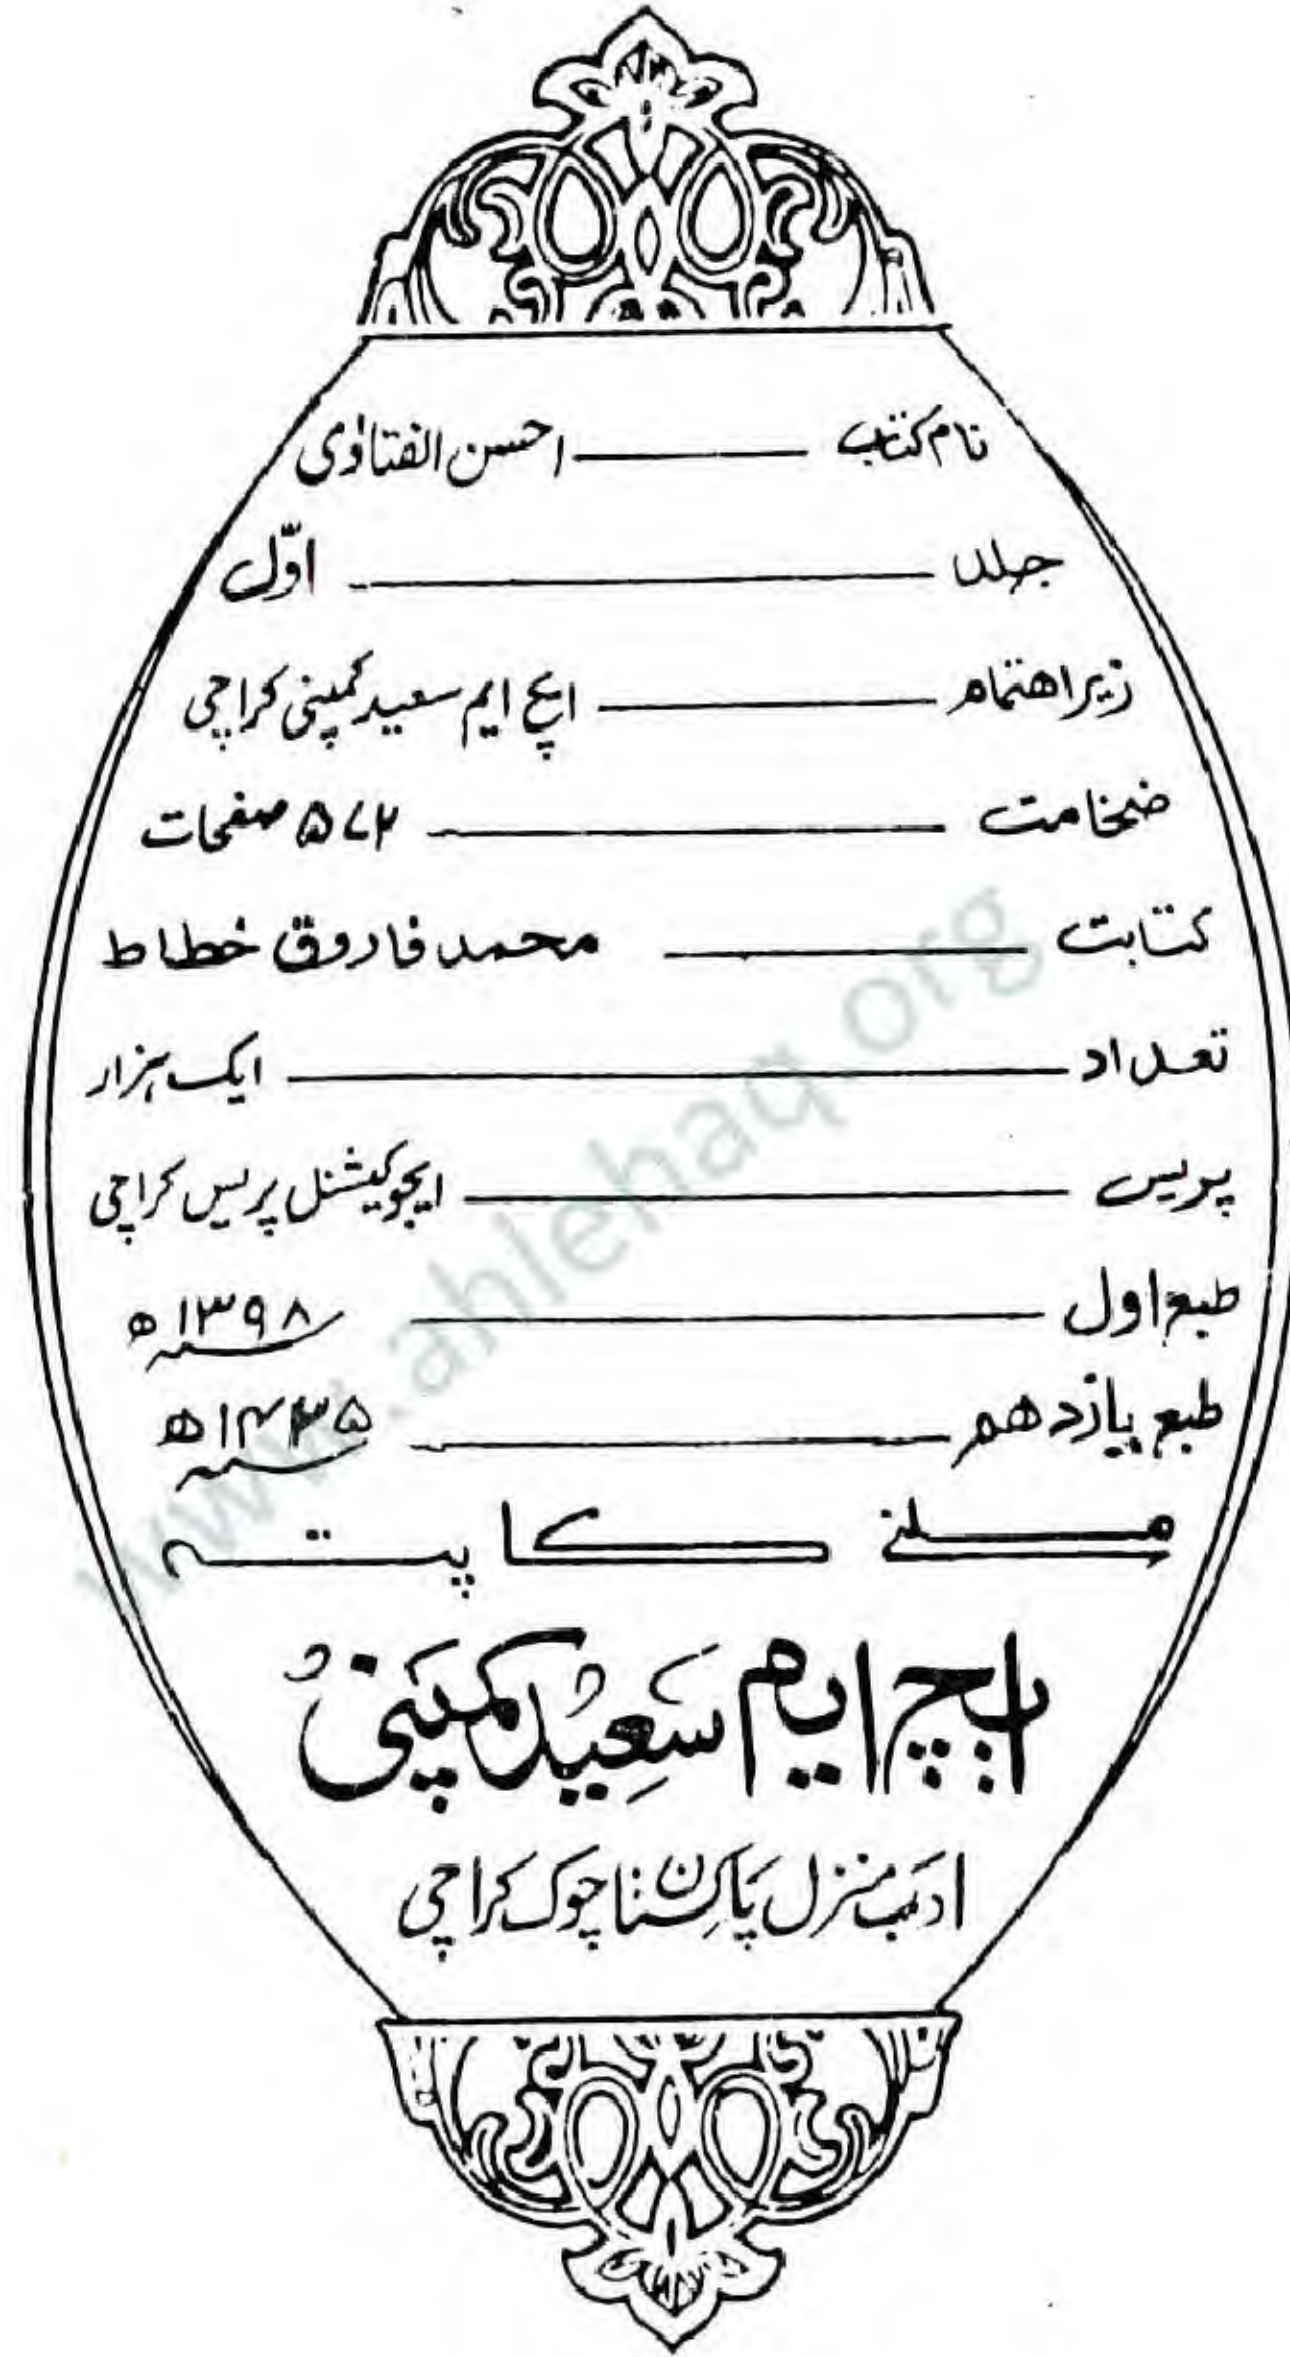 نام کتاب ـــــ احسن الفتاوٰی
جلد ـــــ اوّل
زیر اهتمام ـــــ ایچ ایم سعید کمپنی کراچی
ضخامت ـــــ ۵۷۲ صفحات
کتابت ـــــ محمد فاروق خطاط
تعداد ـــــ ایک ہزار
پریس ـــــ ایجوکیشنل پریس کراچی
طبع اول ـــــ ۱۳۹۸ھ
طبع یازدهم ـــــ ۱۴۳۵ھ
ملنے کا پتہ
ایچ ایم سَعِیْد کمپَنیْ
ادب منزل پاکستان چوک کراچی
www.ahlehaq.org